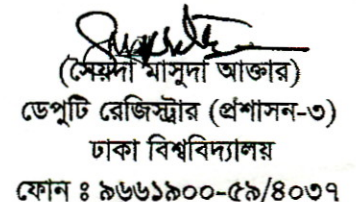 (সৈয়দা মাসুদা আক্তার)
ডেপুটি রেজিস্ট্রার (প্রশাসন-৩)
ঢাকা বিশ্ববিদ্যালয়
ফোন ঃ ৯৬৬১৯০০-৫৯/৪০৩৭